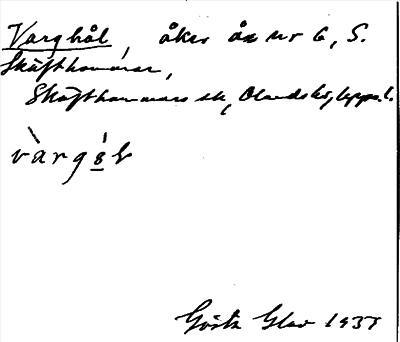 Varghål, åker åå nr 6, S.
Skäfthammar,
Skäfthammars sn, Olands hd, Upps. l.
vàrgó̱l
Gösta Glav 1937